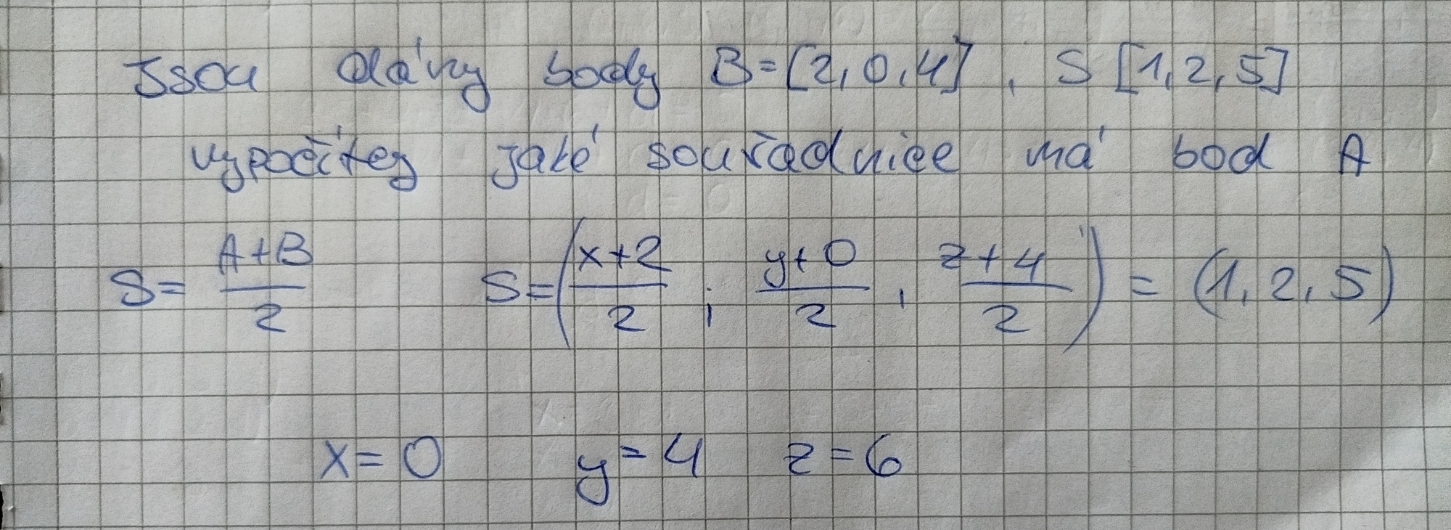 Jsou dány body B=[2,0,4], S[1,2,5]
vypočítej jaké souřadnice má bod A
S= (A+B)/2 S=((x+2)/2 ; (y+0)/2 , (z+4)/2) = (1,2,5)
x=0 y=4 z=6